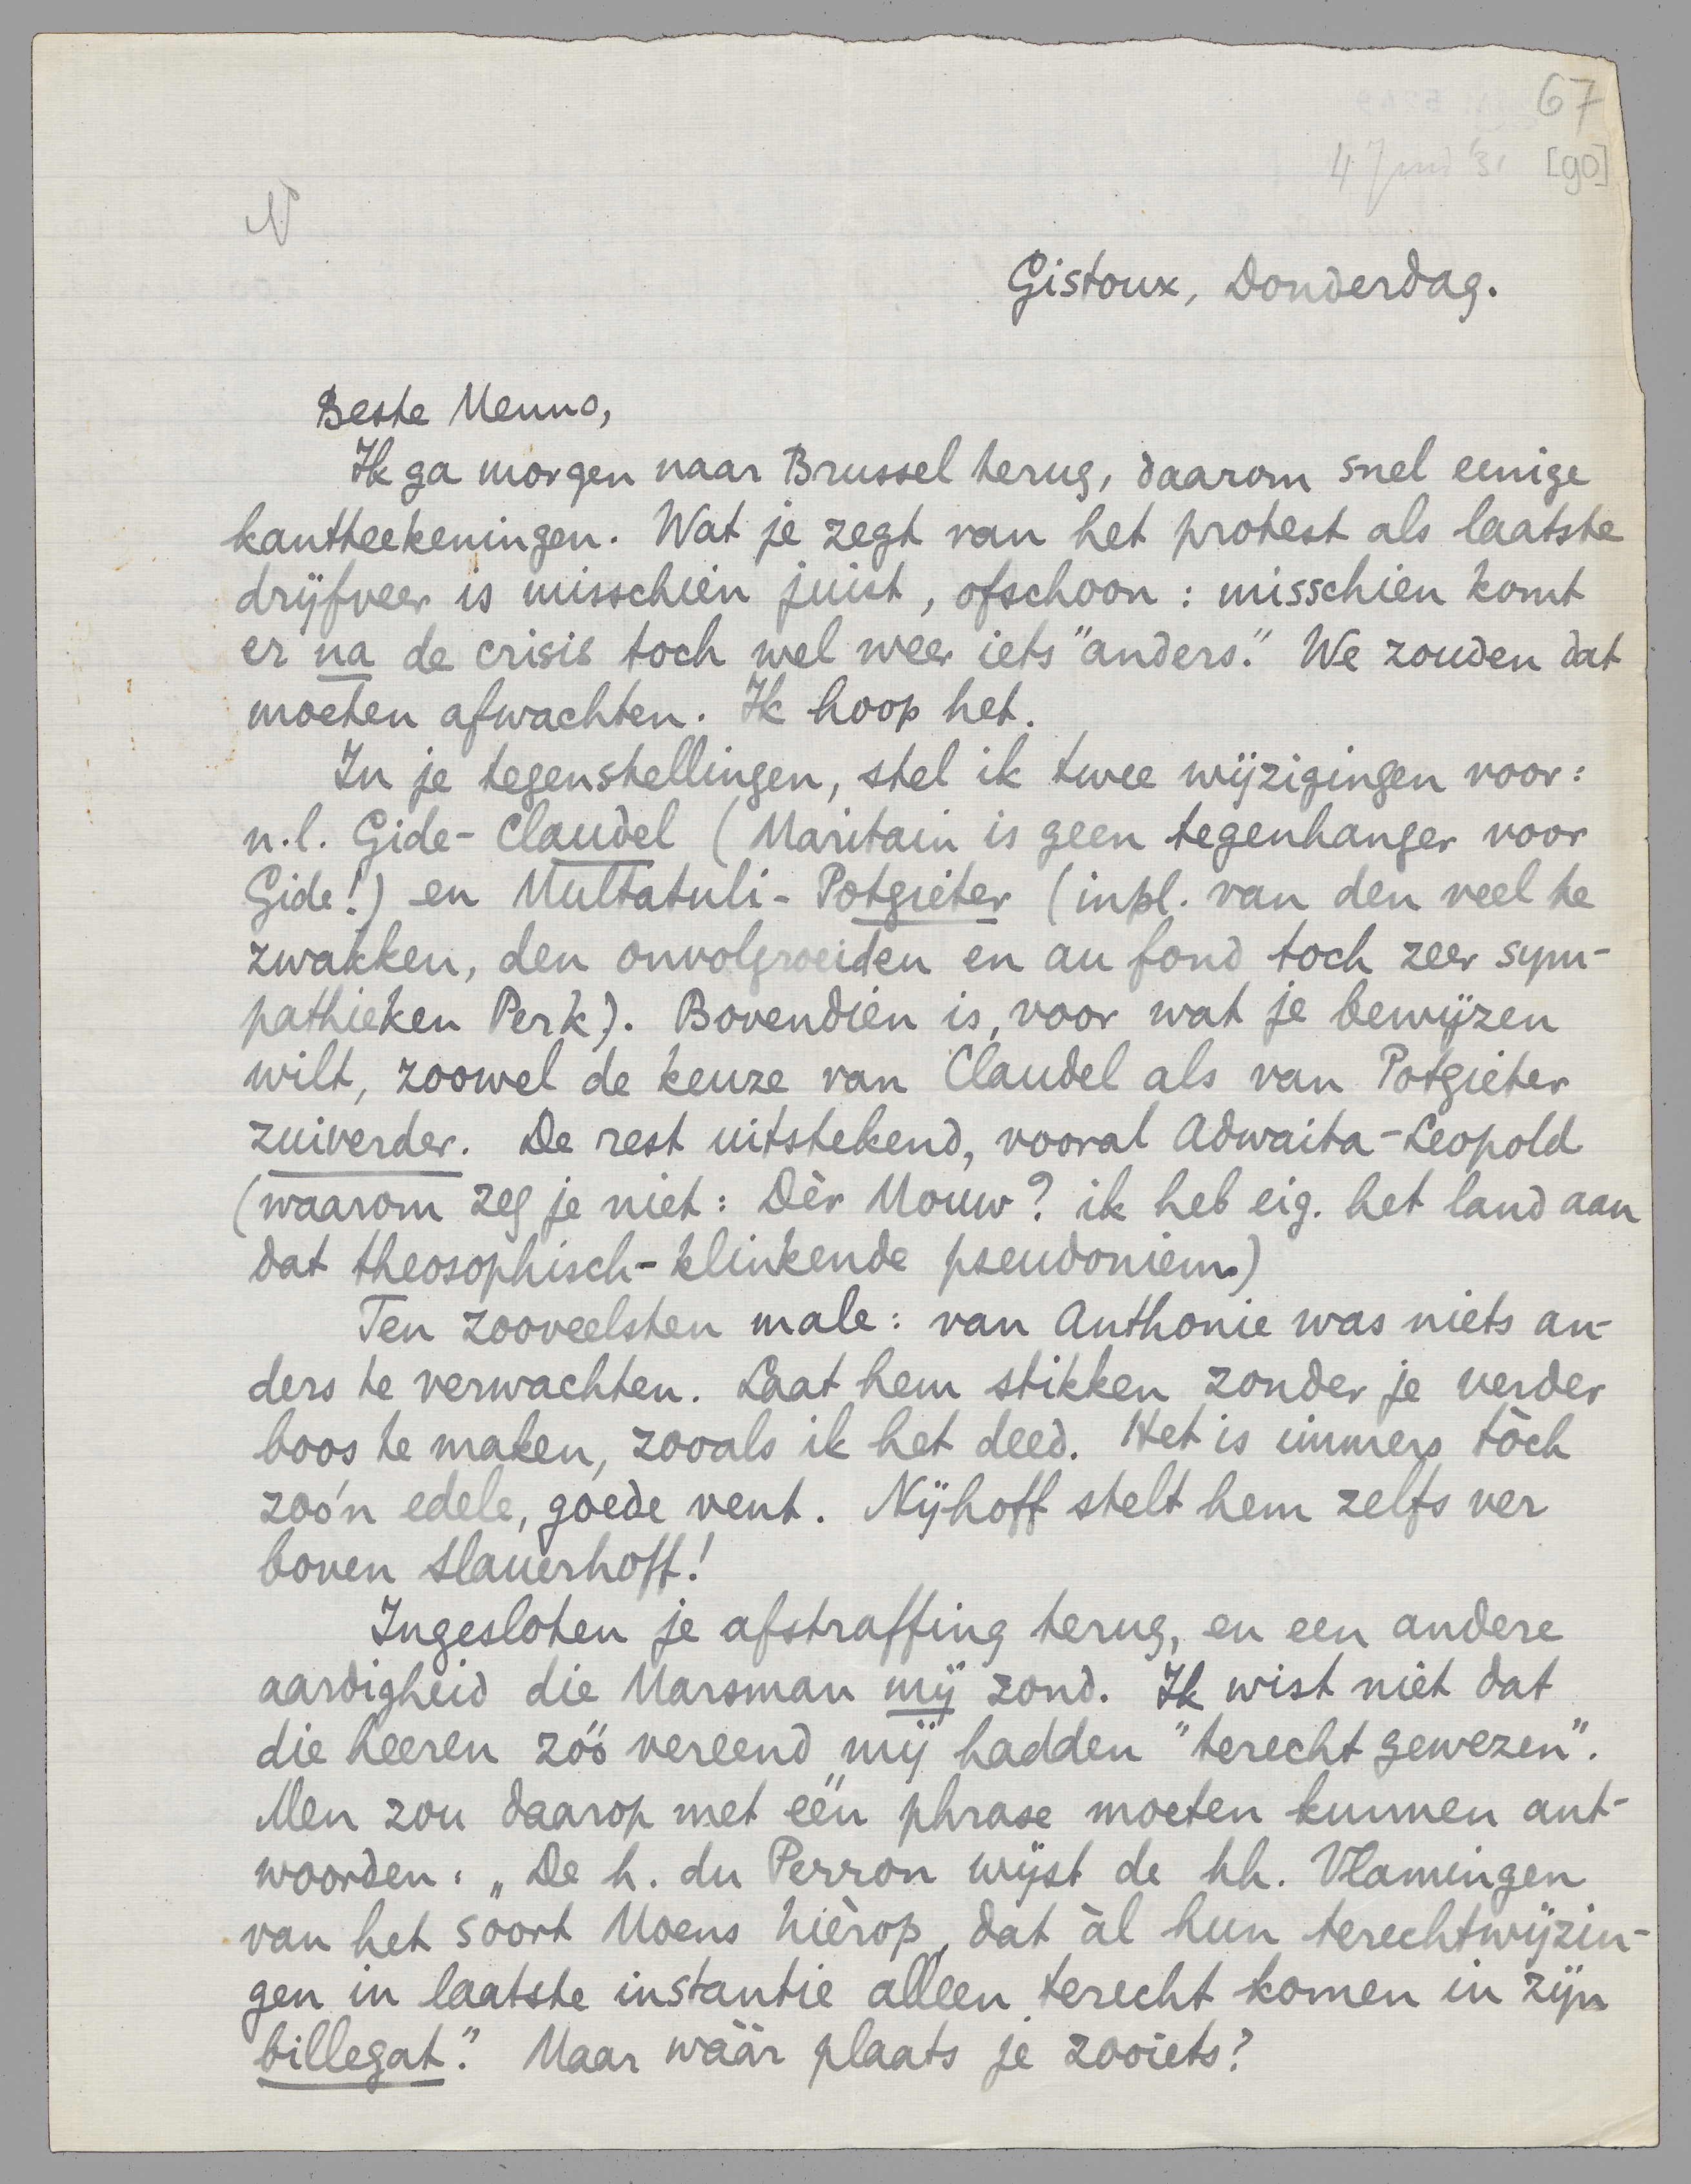 67
4 Juni '31 [90]
N
Gistoux, Donderdag.
Beste Menno,
Ik ga morgen naar Brussel terug, daarom snel eenige
kantteekeningen. Wat je zegt van het protest als laatste
drijfveer is misschien juist, ofschoon: misschien komt
er na de crisis toch wel weer iets "anders." We zouden dat
moeten afwachten. Ik hoop het.
In je tegenstellingen, stel ik twee wijzigingen voor:
n.l. Gide-Claudel (Maritain is geen tegenhanger voor
Gide!) en Multatuli-Potgieter (inpl. van den veel te
zwakken, den onvolgroeiden en au fond toch zeer sym-
pathieken Perk). Bovendien is, voor wat je bewijzen
wilt, zoowel de keuze van Claudel als van Potgieter
zuiverder. De rest uitstekend, vooral Adwaita-Leopold
(waarom zeg je niet: Dèr Mouw? ik heb eig. het land aan
dat theosophisch-klinkende pseudoniem.)
Ten zooveelsten male: van Anthonie was niets an-
ders te verwachten. Laat hem stikken zonder je verder
boos te maken, zooals ik het deed. Het is immers tòch
zoo'n edele, goede vent. Nijhoff stelt hem zelfs ver
boven Slauerhoff!
Ingesloten je afstraffing terug, en een andere
aardigheid die Marsman mij zond. Ik wist niet dat
die heeren zóó vereend mij hadden "terecht gewezen".
Men zou daarop met één phrase moeten kunnen ant-
woorden: „De h. du Perron wijst de hh. Vlamingen
van het soort Moens hièrop, dat àl hun terechtwijzin-
gen in laatste instantie alleen terecht komen in zijn
billegat." Maar wáár plaats je zooiets?